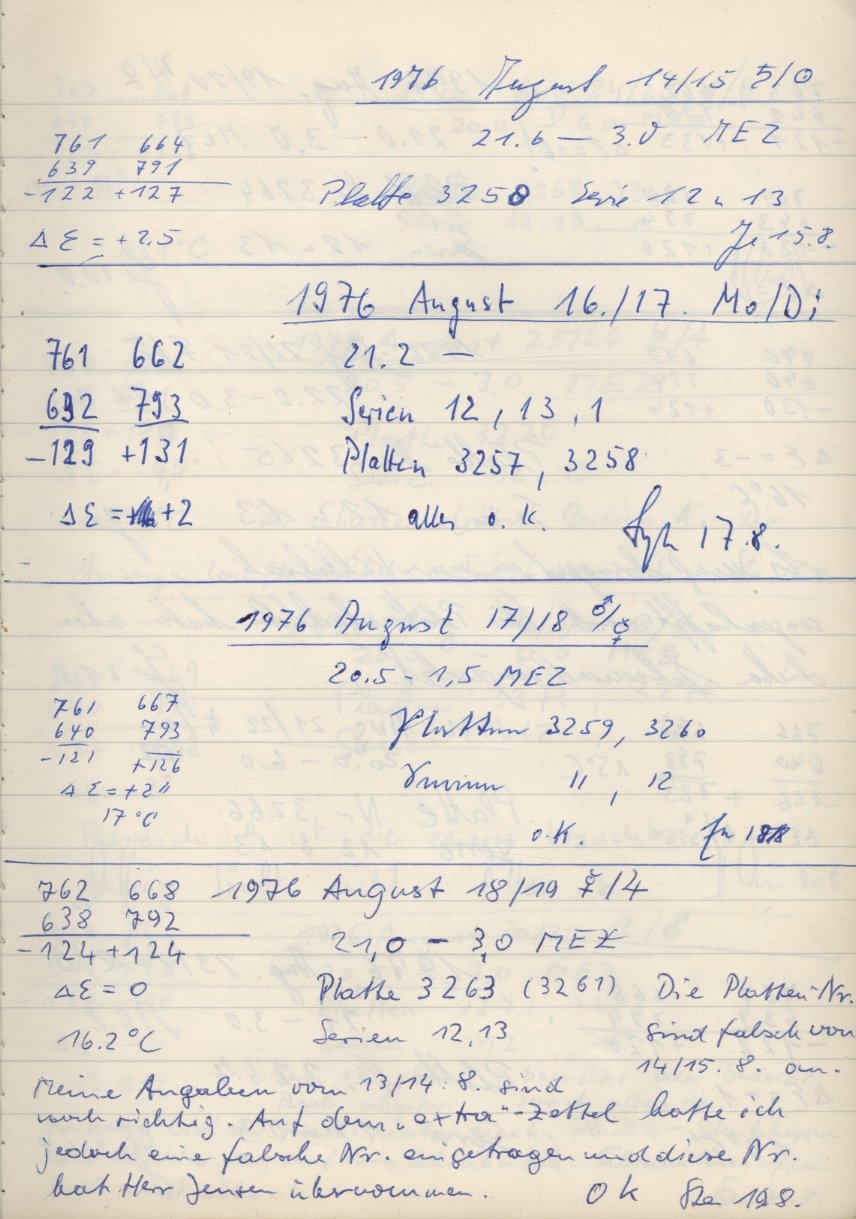 1976 August 14/15 ♄/☉
21.6 — 3.0 MEZ
761 664
639 791
-122 +127
Platte 3258 Serie 12 u 13
Δ Ɛ = +2.5
Je 15.8.
1976 August 16./17. Mo/Di
761 662 21.2 —
692 793 Serien 12, 13, 1
-129 +131 Platten 3257, 3258
Δ Ɛ = +2 alles o.k.
17.8.
1976 August 17/18 ♂/☿
20.5 - 1,5 MEZ
761 667
640 793 Platten 3259, 3260
-121 +126
Δ Ɛ = +2" Serien 11, 12
17 °C
o.K.
762 668 1976 August 18/19 ☿/♃
638 792
-124 +124 21,0 - 3,0 MEZ
Δ Ɛ = 0 Platte 3263 (3261) Die Platten-Nr.
16.2°C Serien 12,13 sind falsch von
14/15.8. an.
Meine Angaben vom 13/14.8. sind
noch richtig. Auf dem „extra"-Zettel hatte ich
jedoch eine falsche Nr. eingetragen und diese Nr.
hat Herr Jensen übernommen. Ok 19.8.